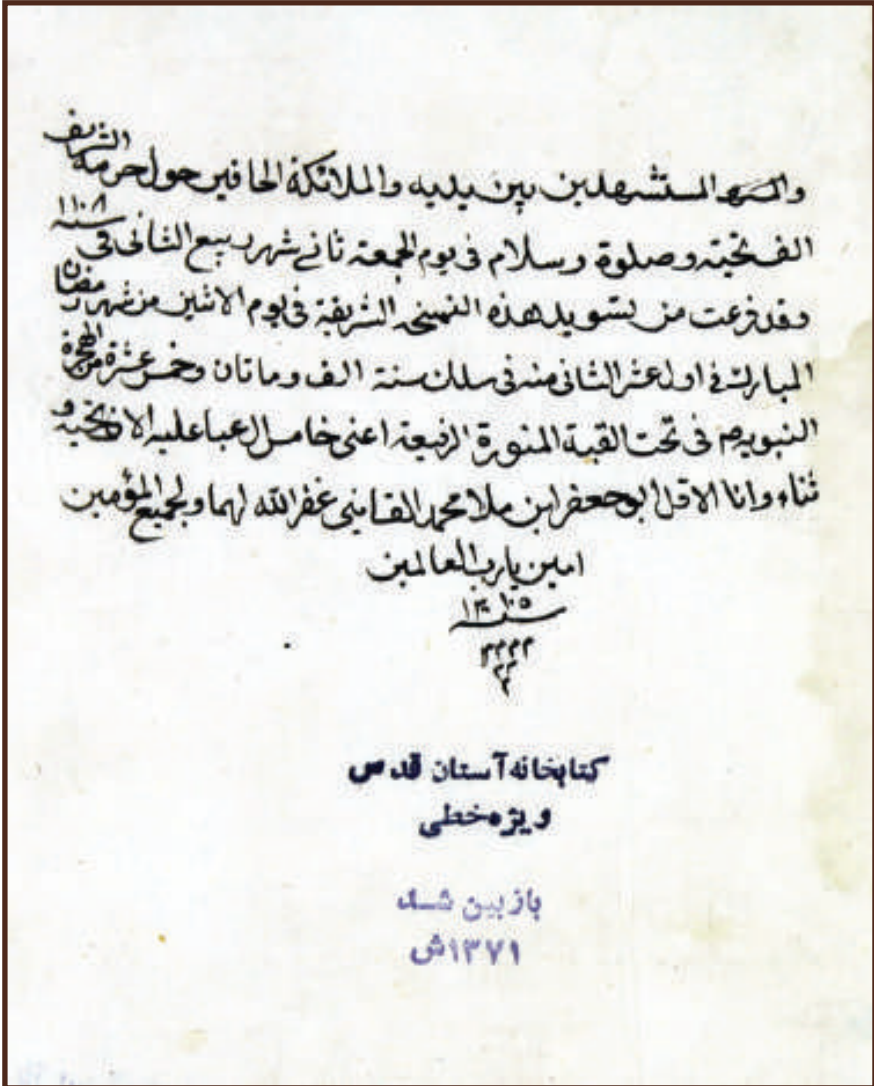 والشهداء المستشهدين بين يديه والملائكة الحافين حول حرمه الشريف
الف تحیته و صلوة و سلام فی یوم الجمعة ثانی شهر ربیع الثانی فی سنه ۱۱۰۸
وقد فرغت من تسوید هذه النسخة الشریفة فی یوم الاثنین من شهر رمضان
المبارك فی اول عشر الثانی منه فی سلك سنة الف و ماتان و خمس عشرة من الهجرة
النبویه م فی تحت القبة المنورة الرفیعة اعنی خامس ال عبا علیه الاف تحیة و
ثناء وانا الاقل ابو جعفر ابن ملا محمد القاینی غفر الله لهما و لجمیع المؤمنین
امین یا رب العالمین
سنه
۲۲۲۲
۲۲
۲
کتابخانه آستان قدس
ویژه خطی
بازبین شد
۱۳۷۱ش